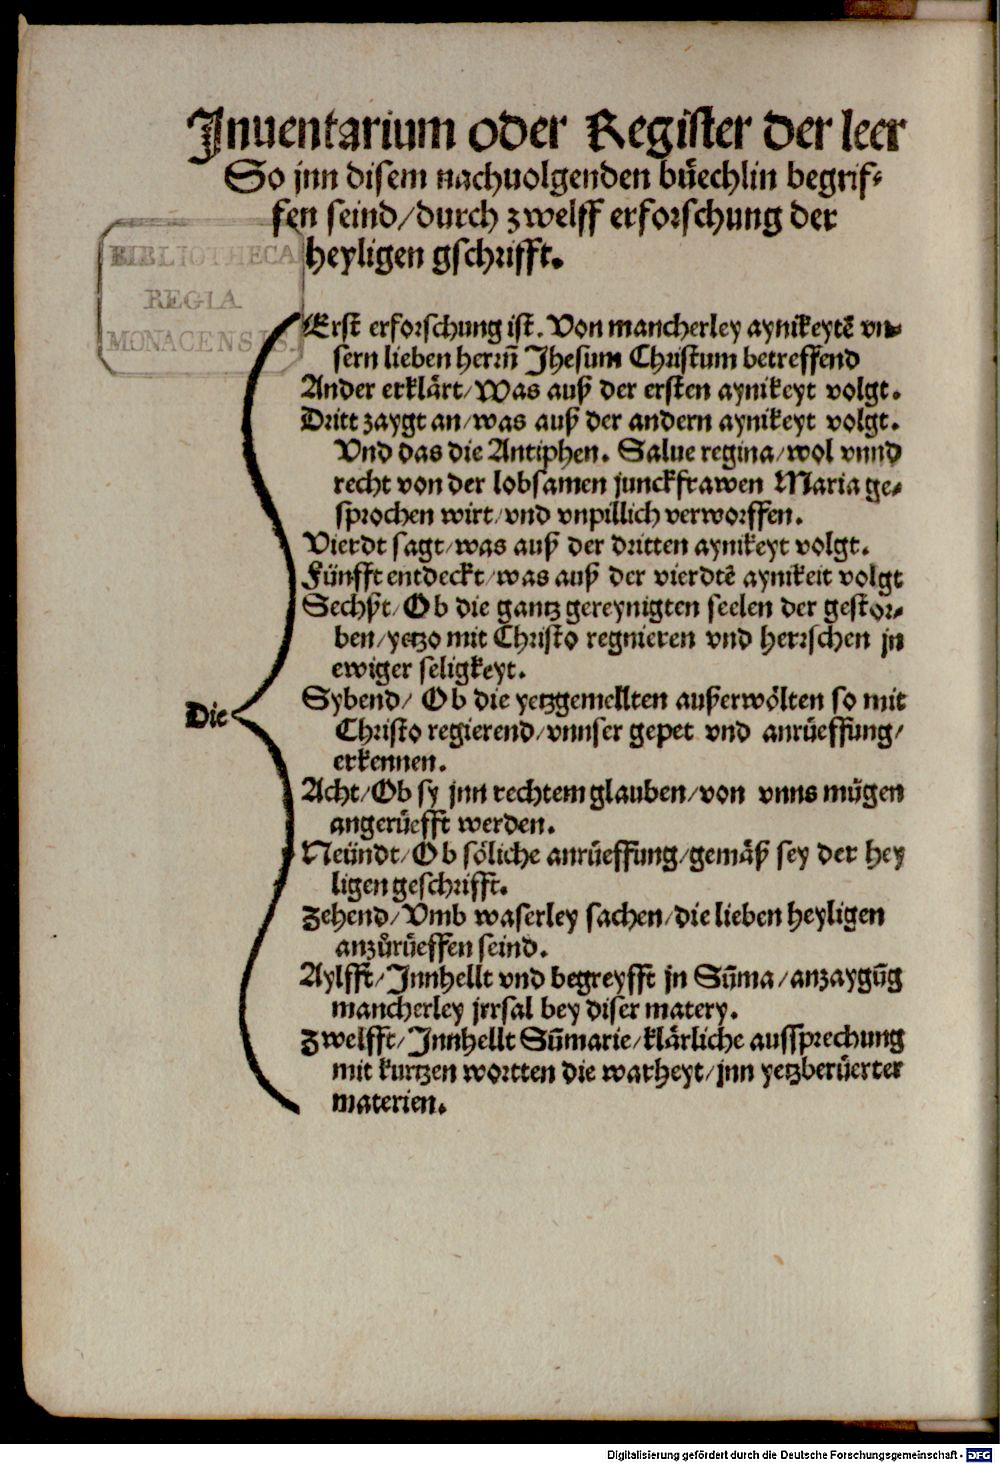 Jnuentarium oder Register der leer
So jnn disem nachuolgenden bůechlin begrif⸗
fen seind/durch zwelff erforschung der
heyligen gschrifft.
BIBLIOTHECA
REGIA
MONACENSIS.
Die
Erst erforschung ist. Von mancherley aynikeytē vn⸗
sern lieben herrn̄ Jhesum Christum betreffend
Ander erklärt/Was auß der ersten aynikeyt volgt.
Dritt zaygt an/was auß der andern aynikeyt volgt.
Vnd das die Antiphen. Salue regina/wol vnnd
recht von der lobsamen junckfrawen Maria ge⸗
sprochen wirt/vnd vnpillich verworffen.
Vierdt sagt/was auß der dritten aynikeyt volgt.
Fünfft entdeckt/was auß der vierdtē aynikeit volgt
Sechßt/Ob die gantz gereynigten seelen der gestor⸗
ben/yetzo mit Christo regnieren vnd herrschen jn
ewiger seligkeyt.
Sybend/ Ob die yetzgemellten außerwölten so mit
Christo regierend/vnnser gepet vnd anrůeffung/
erkennen.
Acht/Ob sy jnn rechtem glauben/von vnns mügen
angerůefft werden.
Neündt/Ob söliche anrůeffung/gemäß sey der hey
ligen geschrifft.
Zehend/Vmb waserley sachen/die lieben heyligen
anzůrůeffen seind.
Aylfft/Jnnhellt vnd begreyfft jn Sūma/anzaygūg
mancherley jrrsal bey diser matery.
Zwelfft/Jnnhellt Sūmarie/klärliche aussprechung
mit kurtzen wortten die warheyt/jnn yetzberůerter
materien.
Digitalisierung gefördert durch die Deutsche Forschungsgemeinschaft - DFG